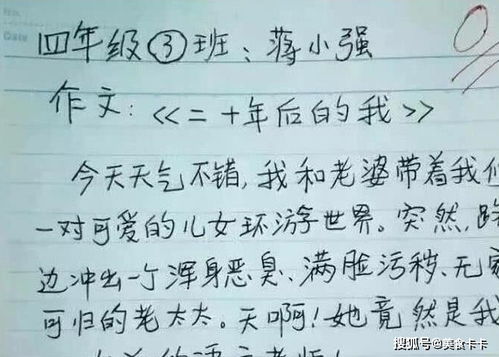 四年级③班:蒋小强
作文:《二十年后的我》
今天天气不错,我和老婆带着我
一对可爱的儿女环游世界。突然,路
边冲出一个浑身恶臭、满脸污秽、无家
可归的老太太。天啊!她竟然是我
搜狐号@美食卡卡